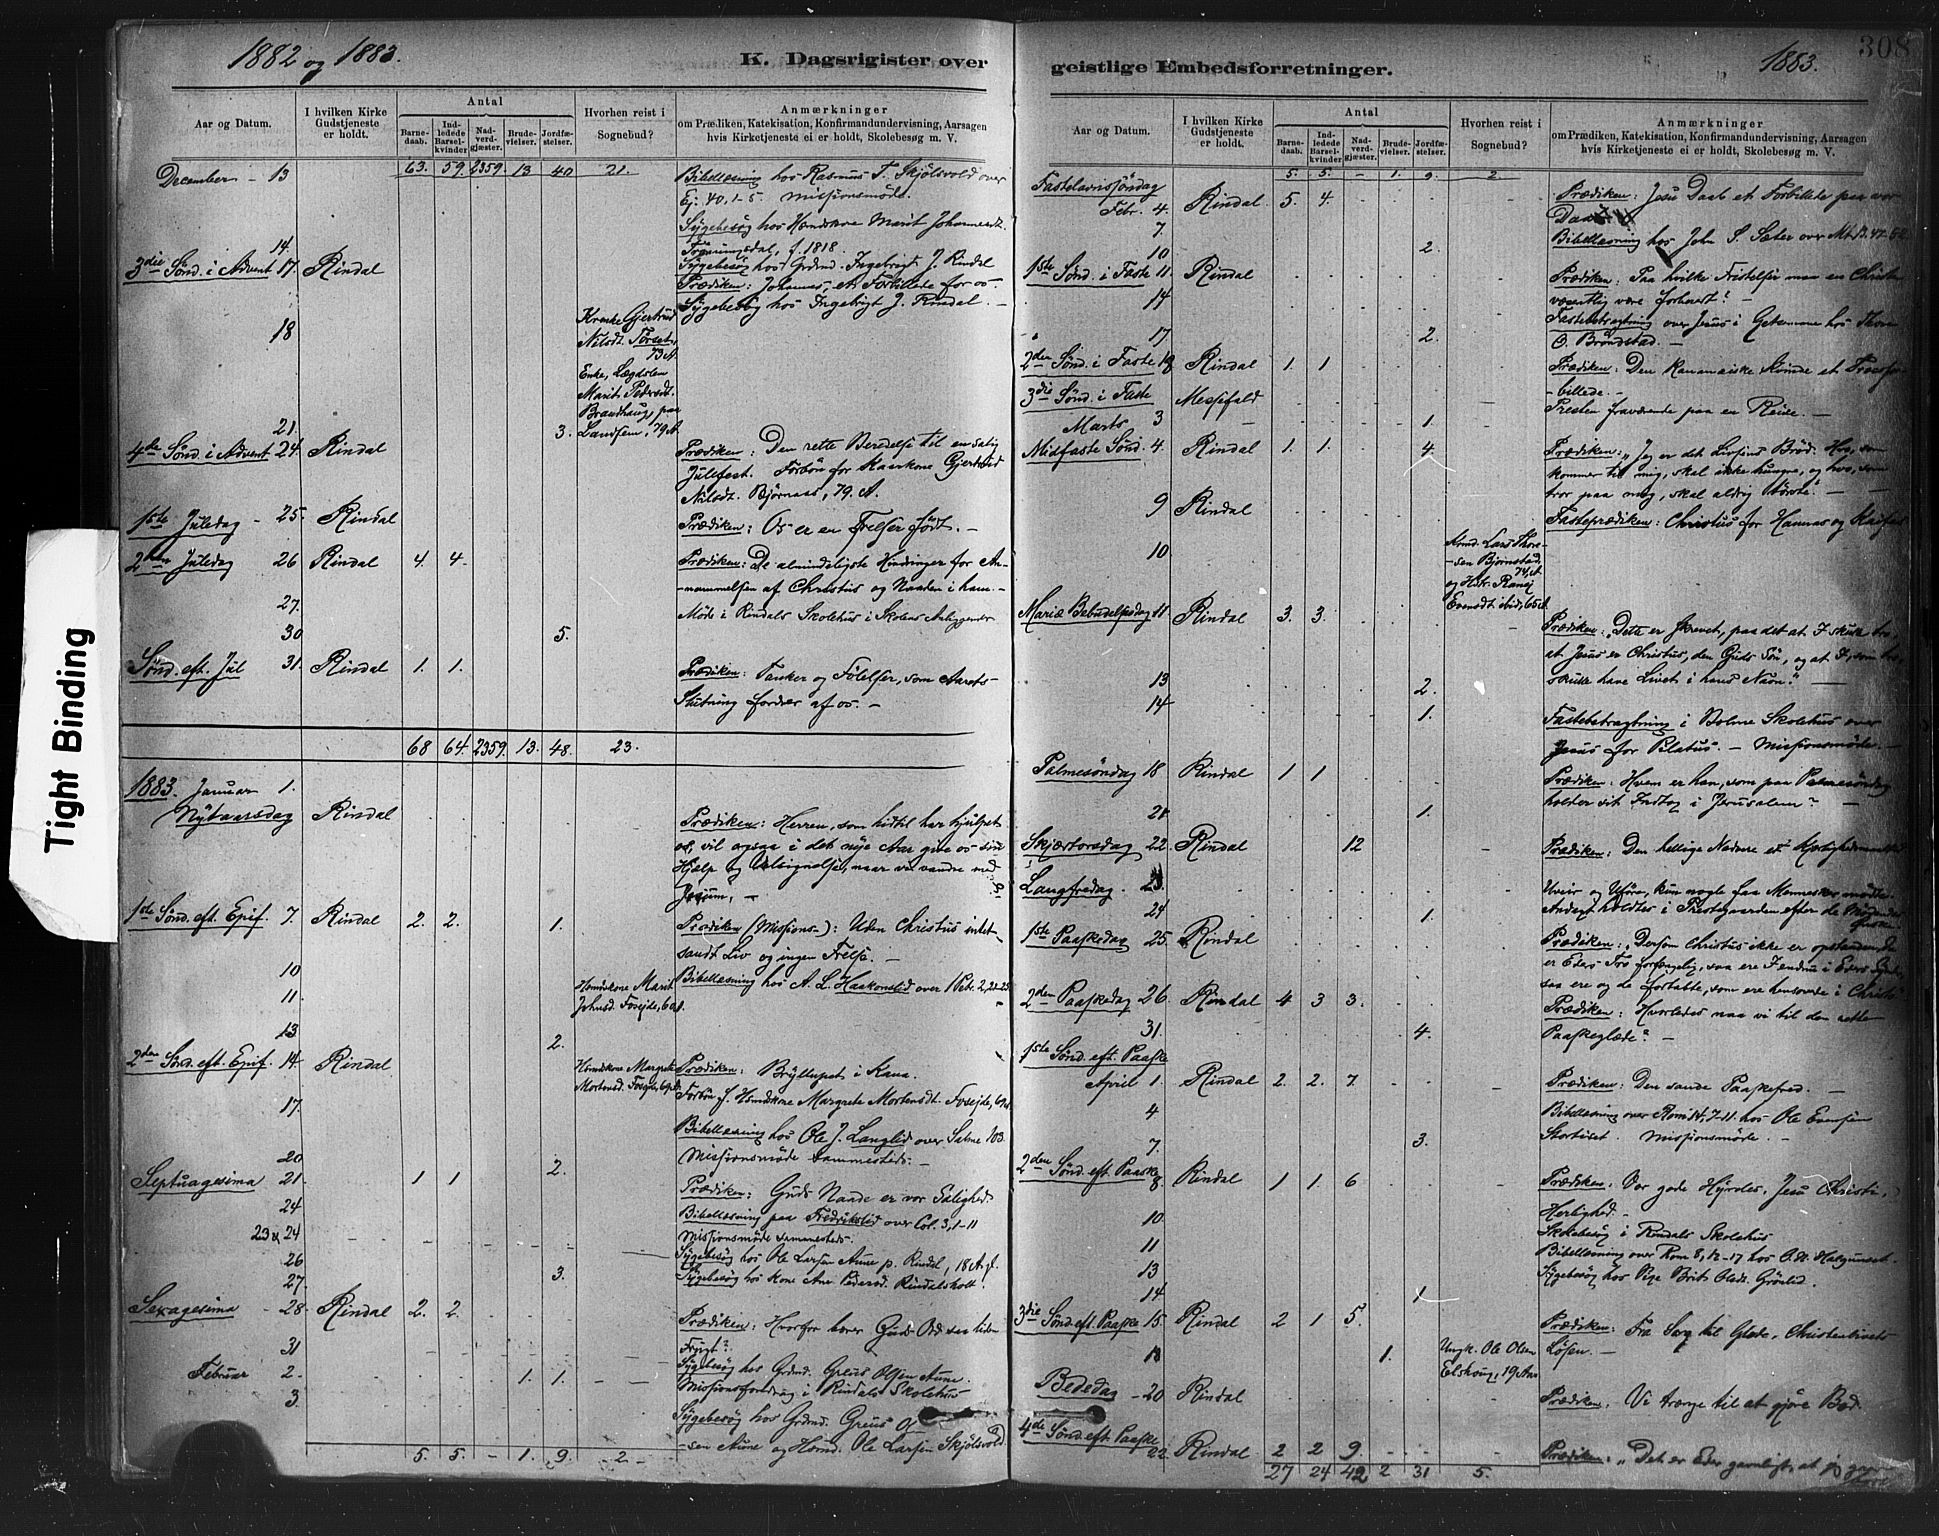 1882 og 1883.
K. Dagsrigister over
Aar og Datum.
I hvilken Kirke Gudstjeneste er holdt.
Antal
Barnedaab.
Indledede Barselkvinder
Nadverdgjæster.
Brudevielser.
Jordfæstelser.
Hvorhen reist i Sognebud?
Anmærkninger
om Prædiken, Katekisation, Konfirmandundervisning, Aarsagen
hvis Kirketjeneste ei er holdt, Skolebesøg m. V.
63. 59. 2359. 13 40 21.
December - 13 Bibellæsning hos Rasmus T. Skjølsvold over
Ej. 40, 1-5. Missionsmøde.
Sygebesøg hos Hmdskone Marit Johannesdt.
14. f. 1818.
Sygebesøg hos Grdmd. Ingebrigt J. Rindal
3die Sønd. i Advent 17. Rindal Prædiken: Johannes, et Forbillede for os -
18 Sygebesøg hos Ingebrigt J. Rindal. -
Gjertrud
Nilsdt. Torset,
73 A.
Enke, Lægdslem
Marit Pedersdt.
Brandhaug, paa
Landsem, 79 A.
21. 3.
4de Sønd. i Advent 24. Rindal Prædiken: Den rette Beredelse til en salig
Julefest. Forbøn for Kaarkone Gjertrud
Nilsdt. Bjørnaas, 79. A.
1ste Juledag - 25. Rindal Prædiken: Os er en Frelser født. -
2den Juledag 26 Rindal 4. 4. Prædiken: De almindeligste Hindringer for An-
-nammelsen af Christus og Naaden i ham. -
27. Møde i Rindals Skolehus i Skolens Anliggender
30 5.
Sønd. eft. Jul 31. Rindal 1. 1. Prædiken: Tanker og Følelser, som Aarets
Slutning fordrer af os. -
68 64. 2359. 13. 48. 23.
1883. Januar 1.
Nytaarsdag Rindal Prædiken: Herren, som hidtil har hjulpet
os, vil ogsaa i det nye Aar give os sin
Hjælp og Velsignelse, naar vi vandre med
Jesum. -
1ste Sønd. eft. Epif. 7. Rindal 2. 2. 1. Prædiken (Missions-): Uden Christus intet
sandt Liv og ingen Frelse. -
10 Bibellæsning hos A. L. Haakonslid over 1 Pet. 2, 21-25
11. Hsmdskone Marit
Johnsd.
13 2.
2den Sønd. eft. Epif. 14. Rindal Hsmdskone Margrete
Mortensd. Prædiken: Brylluppet i Kana.
Forbøn f. Hsmdskone Margrete Mortensdt.
17. Bibellæsning hos Ole J. Langlid over Salme 103.
Missionsmøde sammesteds. -
20 2.
Septuagesima 21. 1 1 Prædiken: Guds Naade er vor Salighed.
24 Bibellæsning paa Fredrikslid over Col. 3, 1-11
Missionsmøde sammesteds.
23 & 24
26 Sygebesøg hos Ole Larsen Aune p. Rindal, 18 A. f.
27. 3. Sygebesøg hos Kone Ane Pedersd. Rindalsholt.
Sexagesima - 28. Rindal 2. 2. Prædiken: Hvorfor bærer Guds Ord saa liden
Frugt?
31 Sygebesøg hos Grdmd. Greus Olsen Aune.
Februar 2. 1. 1. Missionsforedrag i Rindals Skolehus
3. Sygebesøg hos Grdmd. Greus Ol-
-sen Aune og Hsmd. Ole Larsen Skjølsvold
5. 5. - 1. 9. 2.
308
1883.
geistlige Embedsforretninger.
Aar og Datum.
I hvilken Kirke Gudstjeneste er holdt.
Antal
Barnedaab.
Indledede Barselkvinder
Nadvergjæster.
Brudevielser.
Jordfæstelser.
Hvorhen reist i Sognebud?
Anmærkninger
om Prædiken, Katekisation, Konfirmandundervisning, Aarsagen
hvis Kirketjeneste ei er holdt, Skolebesøg m. V.
5. 5. - 1. 9. 2
Fastelavnssøndag
Febr. 4. Rindal 5. 4. Prædiken: Jesu Daab et Forbillede paa vor
Daab.
7 Bibellæsning hos John S. Sæter over Mt. 13, 47-52
10 2.
1ste Sønd. i Faste 11. Rindal Prædiken: Paa hvilke Fristelser maa en Christen
væsentlig være forberedt? -
14 Fastebetragtning over Jesus i Getsemane hos Thore
O. Brøndstad. -
17 2.
2den Sønd. i Faste 18 Rindal 1 1 Prædiken: Den Kananæiske Kvinde et Troesfor-
-billede. -
3die Sønd. i Faste Messefald Presten fraværende paa en Reise. -
Marts 3 1.
Midfaste Sønd. 4. Rindal 1. 1. 4. Prædiken: "Jeg er det Livsens Brød. Hvo, som
kommer til mig, skal ikke hungre, og hvo, som
tror paa mig, skal aldrig tørste." -
9 Rindal Fasteprædiken: Christus for Hannas og Kaifas
10 Lars Thore-
-sen Bjørnstad,
74 A.
og Hstr. Ranej
Evensdt ibid, 65 A.
Mariæ Bebudelsesdag 11 Rindal 3. 3. Prædiken: "Dette er skrevet, paa det at I skulle tro,
at Jesus er Christus, den Guds Søn, og at I, som tro,
skulle have Livet i hans Navn." -
13 2.
14 1. Fastebetragtning i Bolme Skolehus over
Jesus for Pilatus. - Missionsmøde. -
Palmesøndag 18 Rindal 1 1 Prædiken: Hvem er han, som paa Palmesøndag
holder sit Indtog i Jerusalem? -
21 1.
Skjærtorsdag 22. Rindal 12 Prædiken: Den hellige Nadvere et
Langfredag. 23. Uveir og Uføre, kun nogle faa Mennesker mødte.
Andagt holdtes i Prestegaarden efter de Mødendes
Ønske.
24 1.
1ste Paaskedag 25. Rindal Prædiken: "Dersom Christus ikke er opstanden, da
er Eders Tro forfængelig, saa ere I endnu i Eders Synder,
saa ere og de fortabte, som ere hensovede i Christo."
2den Paaskedag 26. Rindal 4 3 3. Prædiken: Hvorledes naa vi til den rette
Paaskeglæde? -
31. 4.
1ste Sønd. eft. Paaske
April 1. Rindal 2. 2. 7. Prædiken: Den sande Paaskefred. -
4 Bibellæsning over Rom. 14, 7-11. hos Ole Evensen
Stortuset. Missionsmøde. -
7. 3.
2den Sønd. eft. Paaske 8. Rindal 1 1 6 Prædiken: Vor gode Hyrdes, Jesu Christi,
Herlighed. -
10. Skolebesøg i Rindals Skolehus
11 Bibellæsning over Rom 8, 12-17 hos
13 Sygebesøg hos Pige Brit Olsdt. Grønlid.
14 1
3die Sønd. eft. Paaske 15. Rindal 2 1 5. Prædiken: Fra Sorg til Glæde, Christenlivets
Løsen. -
18 1. Ungk. Ole Olsen
Elshaug, 19 Aar
Bededag - 20 Rindal Prædiken. Vi trænge til at gjøre Bod.
4de Sønd. eft. Paaske
22. Rindal 2 2 9. Prædiken: "Det er Eder gavnligt, at jeg gaar
bort
27 24 42 2 31 5.
Tight Binding